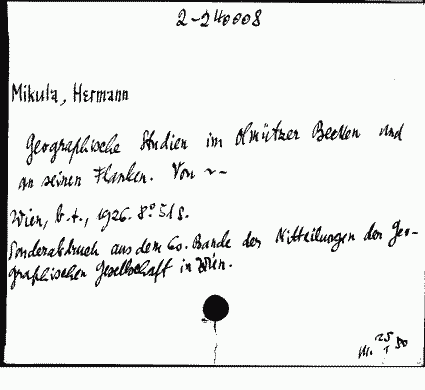 2-240008
Mikula, Hermann
Geographische Studien im Olmützer Becken und
an seinen Flanken. Von ~~
Wien, b. t., 1926. 8° 51 s.
Sonderabdruck aus dem 60. Bande der Mitteilungen der Geo-
graphischen Gesellschaft in Wien.